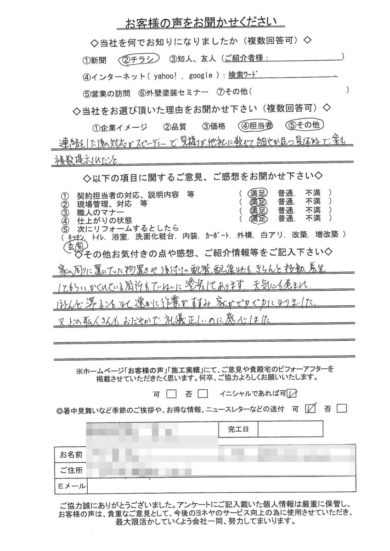 お客様の声をお聞かせください
◇当社を何でお知りになりましたか（複数回答可）◇
①新聞 ②チラシ ③知人、友人（ご紹介者様： ）
④インターネット( yahoo! , google ) ：検索ﾜｰﾄﾞ
⑤営業の訪問 ⑥外壁塗装セミナー ⑦その他( )
◇当社をお選び頂いた理由をお聞かせ下さい（複数回答可）◇
①企業イメージ ②品質 ③価格 ④担当者 ⑤その他
◇以下の項目に関するご意見、ご感想をお聞かせ下さい◇
① 契約担当者の対応、説明内容 等 （ 満足 普通、 不満 ）
② 現場管理、対応 等 （ 満足 普通、 不満 ）
③ 職人のマナー （ 満足 普通、 不満 ）
④ 仕上がりの状態 （ 満足 普通、 不満 ）
⑤ 次にリフォームするとしたら
( ｷｯﾁﾝ、 ﾄｲﾚ、 浴室、 洗面化粧台、 内装、 ｶｰﾎﾟｰﾄ、 外構、 白アリ、 改築、 増改築 )
玄関
◇その他お気付きの点や感想、ご紹介情報等をご記入下さい◇
家の周りに置いてた物置きや
きちんと移動、養生
ていねいに塗装してあります 天気にも恵まれ
作業がすすみ 家がピカピカになりました
おだやかで礼儀正しいのに感心しました
※ホームページ「お客様の声」「施工実績」にて、ご意見や貴殿宅のビフォーアフターを
掲載させていただきたく思います。何卒、ご協力よろしくお願いいたします。
可 □ 否 □ イニシャルであれば可 ☑
◎暑中見舞いなど季節のご挨拶や、お得な情報、ニュースレターなどの送付 可 ☑ 否 □
完工日
お名前
ご住所
Eメール
ご協力誠にありがとうございました。アンケートにご記入戴いた個人情報は厳重に保管し、
お客様の声は、貴重なご意見として、今後のヨネヤのサービス向上の為に使用させていただき、
最大限活かしていくよう会社一同、努力してまいります。